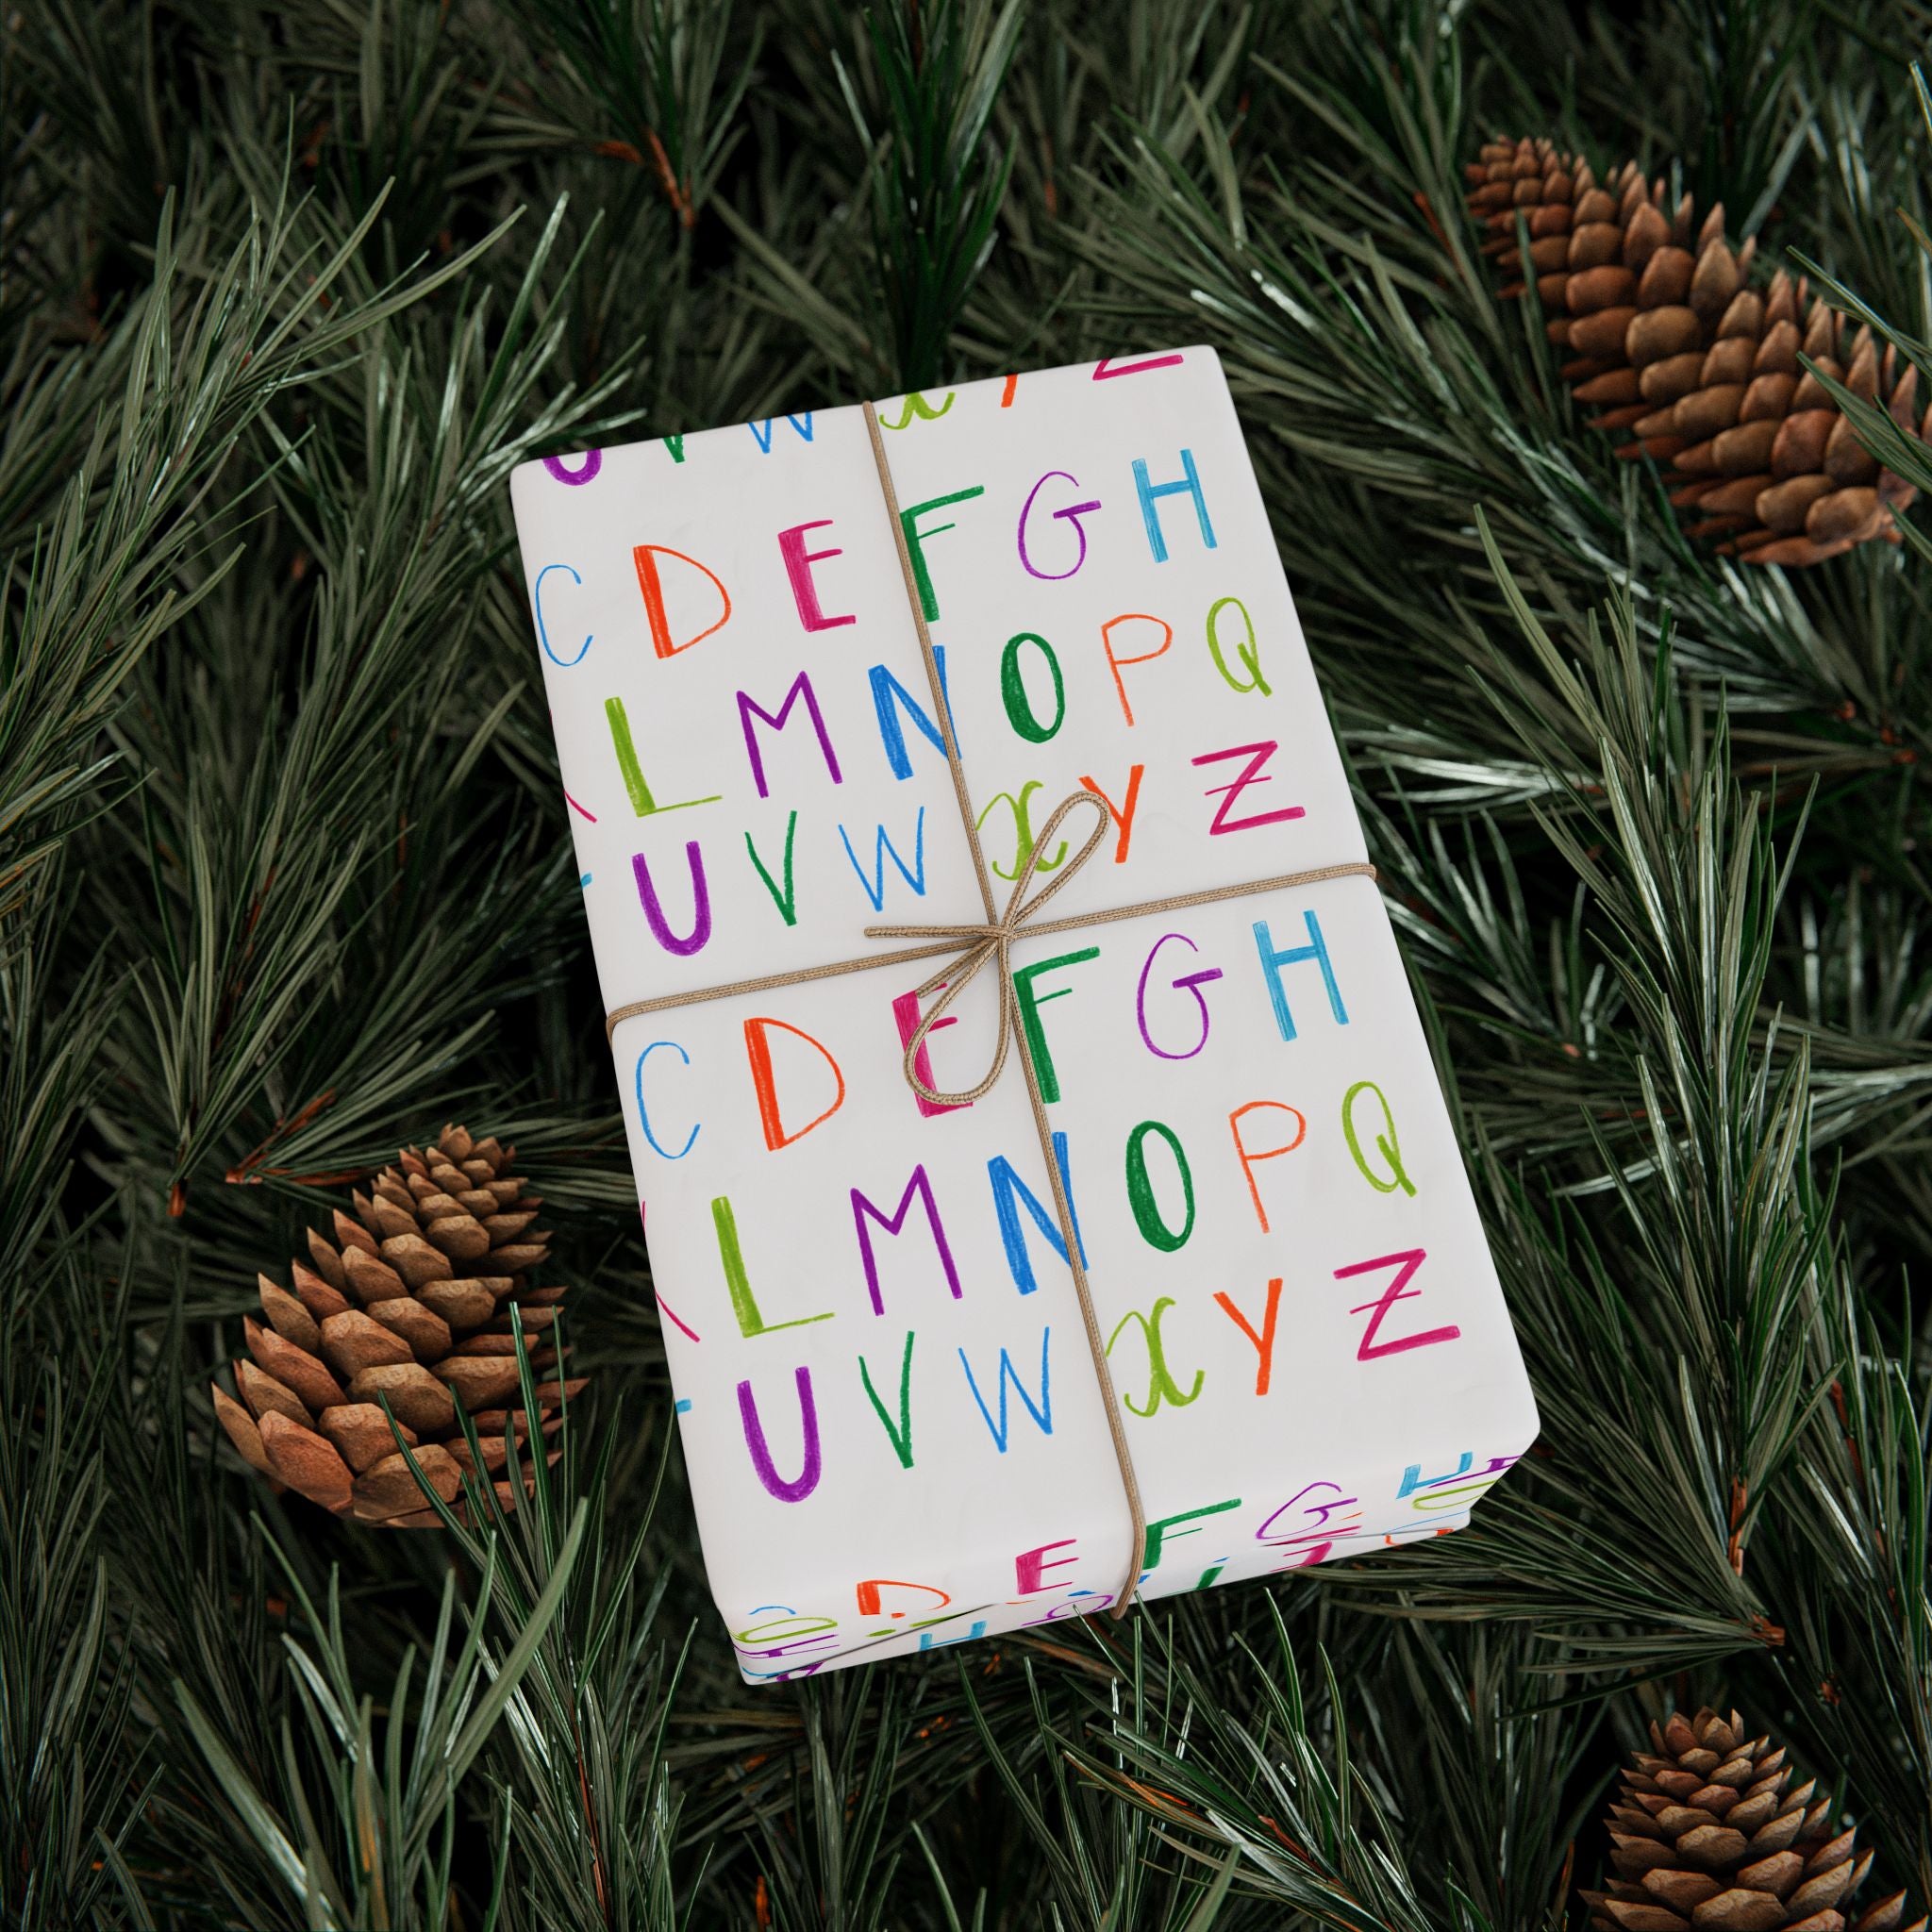 U V W X Y Z
C D E F G H
L M N O P Q
U V W X Y Z
C D E F G H
K L M N O P Q
U V W X Y Z
D E F G H